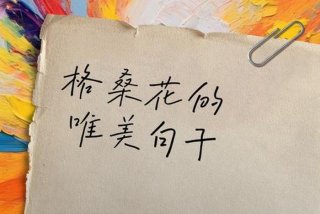 格桑花的
唯美句子